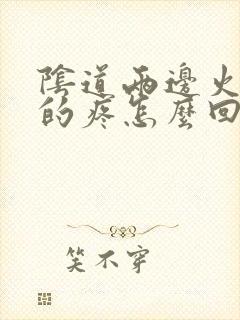 陰道兩邊火
的疼怎麼回
笑不穿